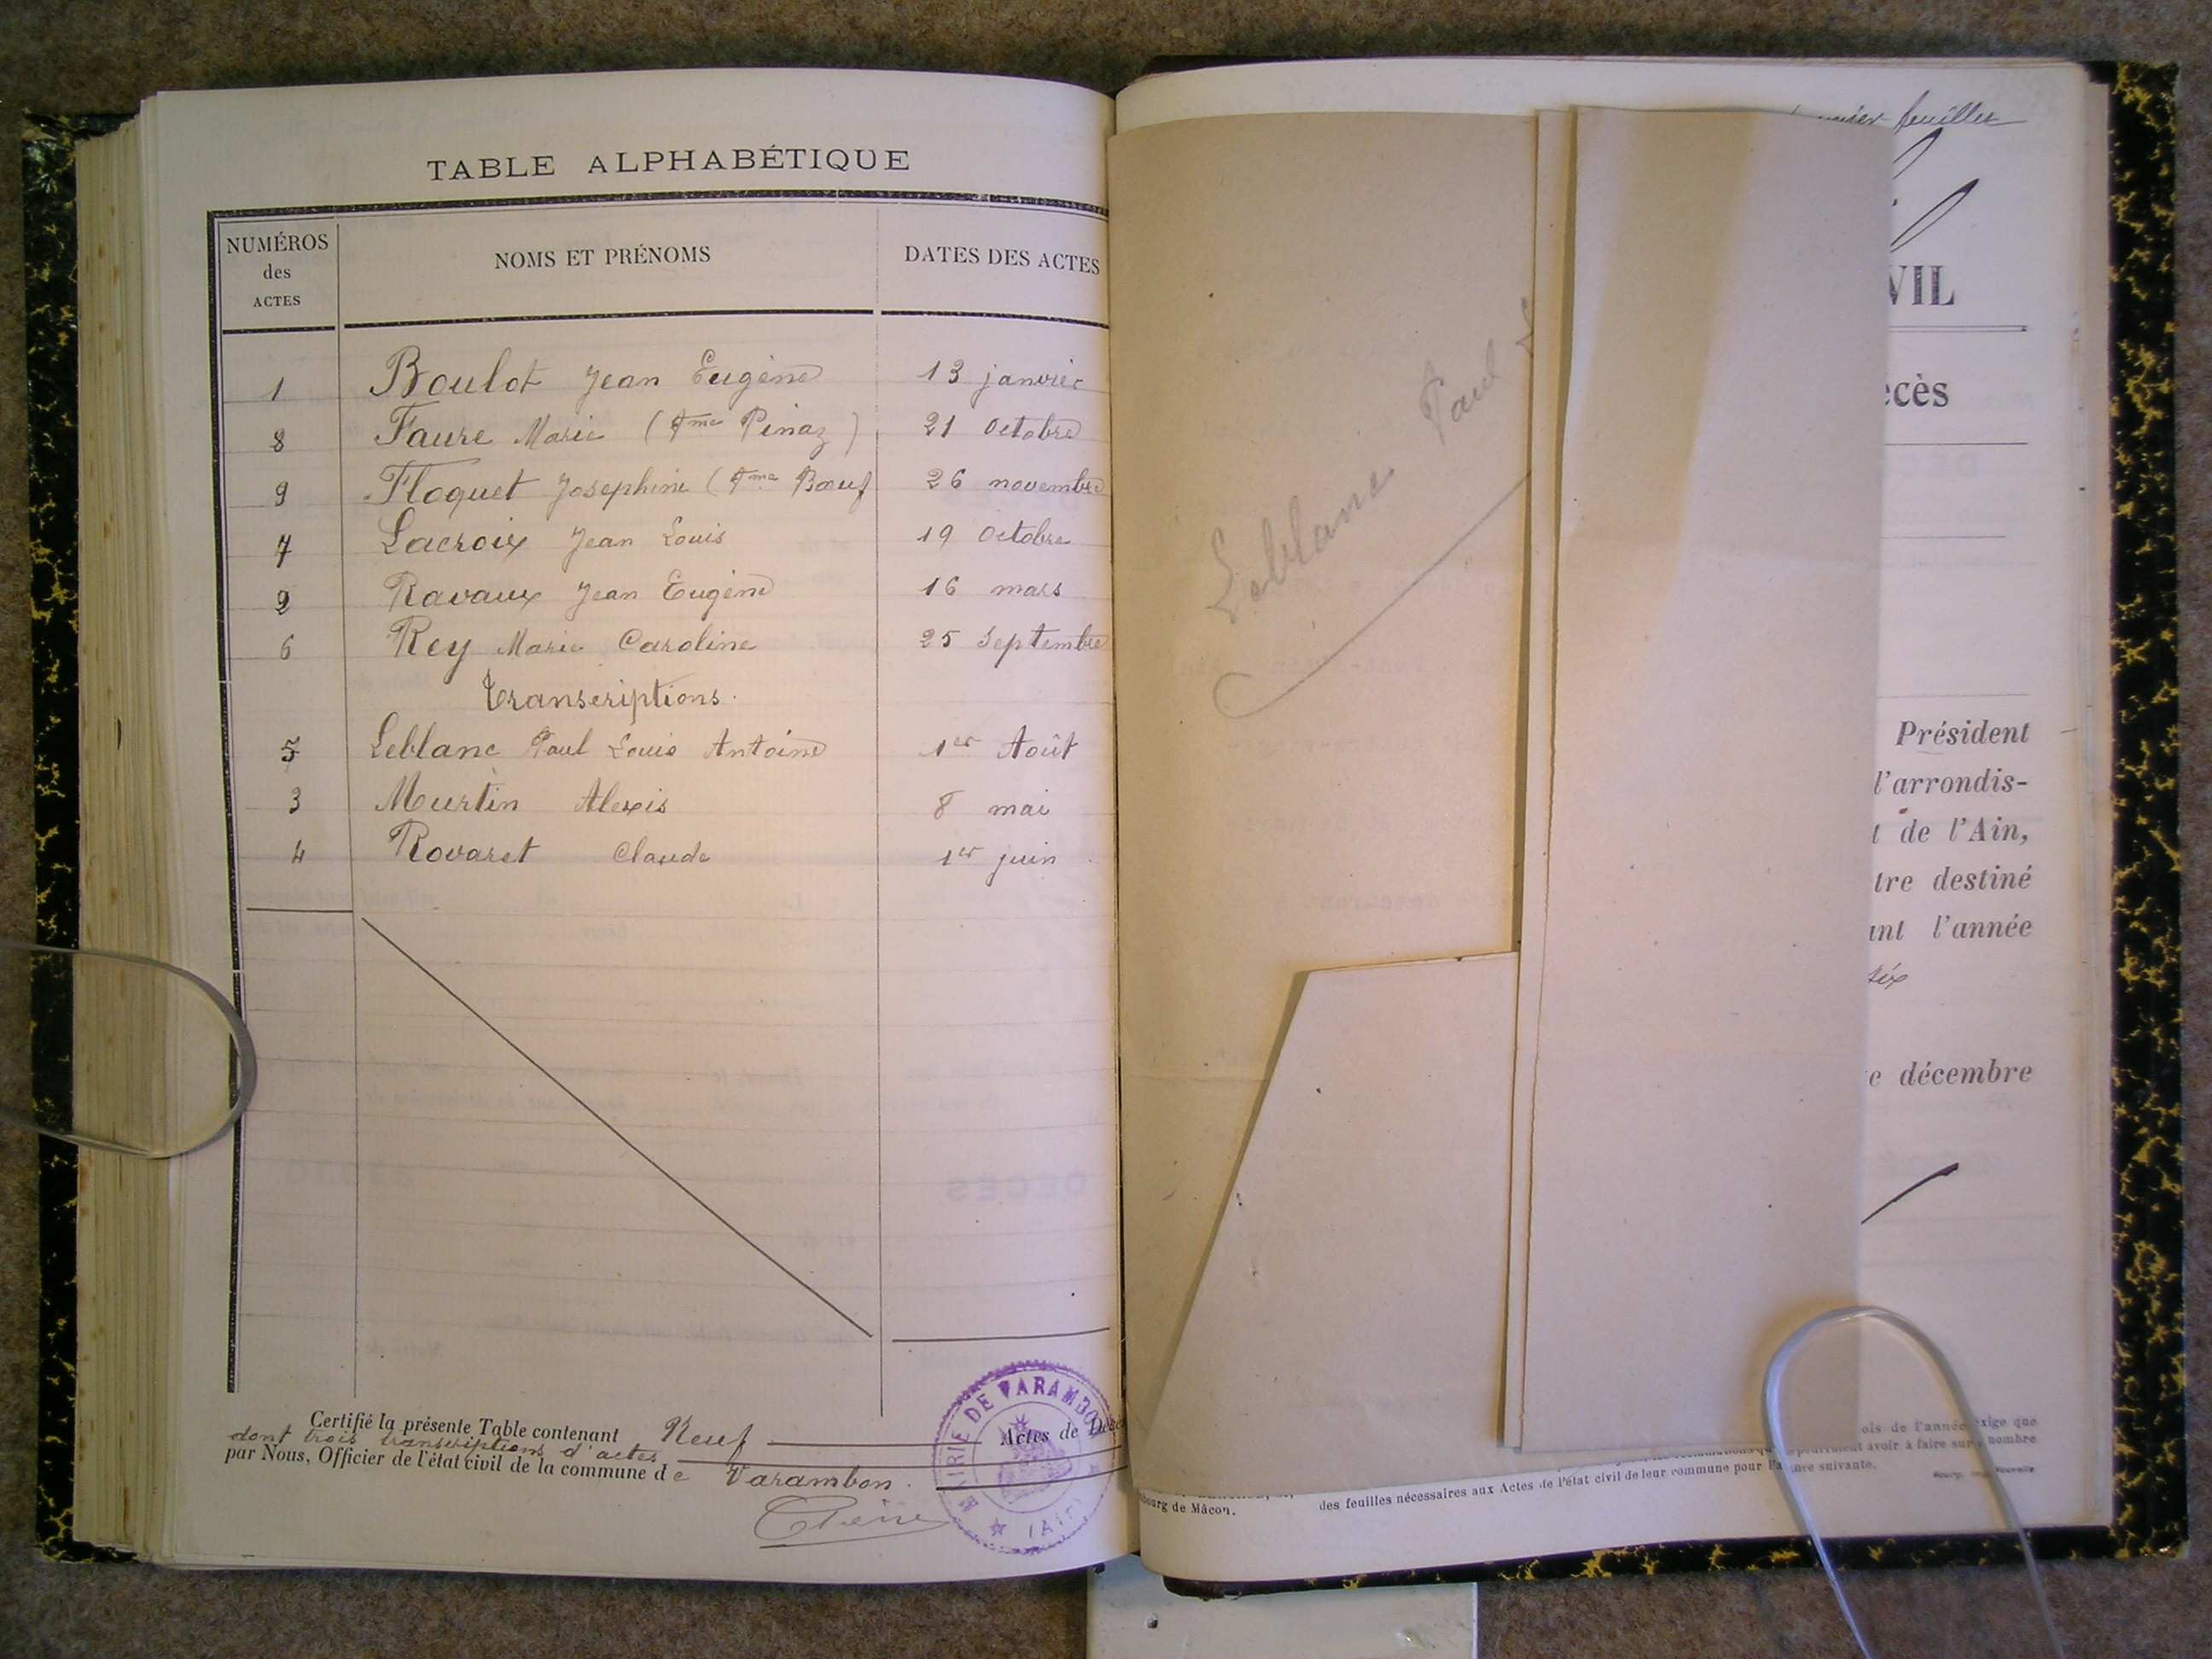 TABLE ALPHABÉTIQUE
NUMÉROS des ACTES NOMS ET PRÉNOMS DATES DES ACTES
1 Boulot Jean Eugène 13 janvier
8 Faure Marie (Fme Pinaz) 21 Octobre
9 Floquet Josephine (Fme Bœuf 26 novembre
7 Lacroix Jean Louis 19 Octobre
2 Ravaux Jean Eugène 16 mars
6 Rey Marie Caroline 25 Septembre
Transcriptions.
5 Leblanc Paul Louis Antoine 1er Août
3 Murtin Alexis 8 mai
4 Rovaret Claude 1er juin
Certifié la présente Table contenant Neuf Actes de Décè
dont trois transcriptions d'actes
par Nous, Officier de l'état civil de la commune de Varambon.
MAIRIE DE VARAMBON
(AIN)
Leblanc Paul
feuillet
VIL
écès
Président
l'arrondis-
t de l'Ain,
tre destiné
ant l'année
six
e décembre
ois de l'année exige que
avoir à faire sur nombre
des feuilles nécessaires aux Actes de l'état civil de leur commune pour l'année suivante.
bourg de Mâcon.